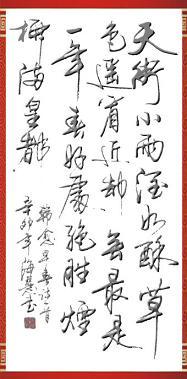 天街小雨润如酥草
色遥看近却无最是
一年春好處绝胜煙
柳满皇都
韩愈早春诗一首
辛卯年